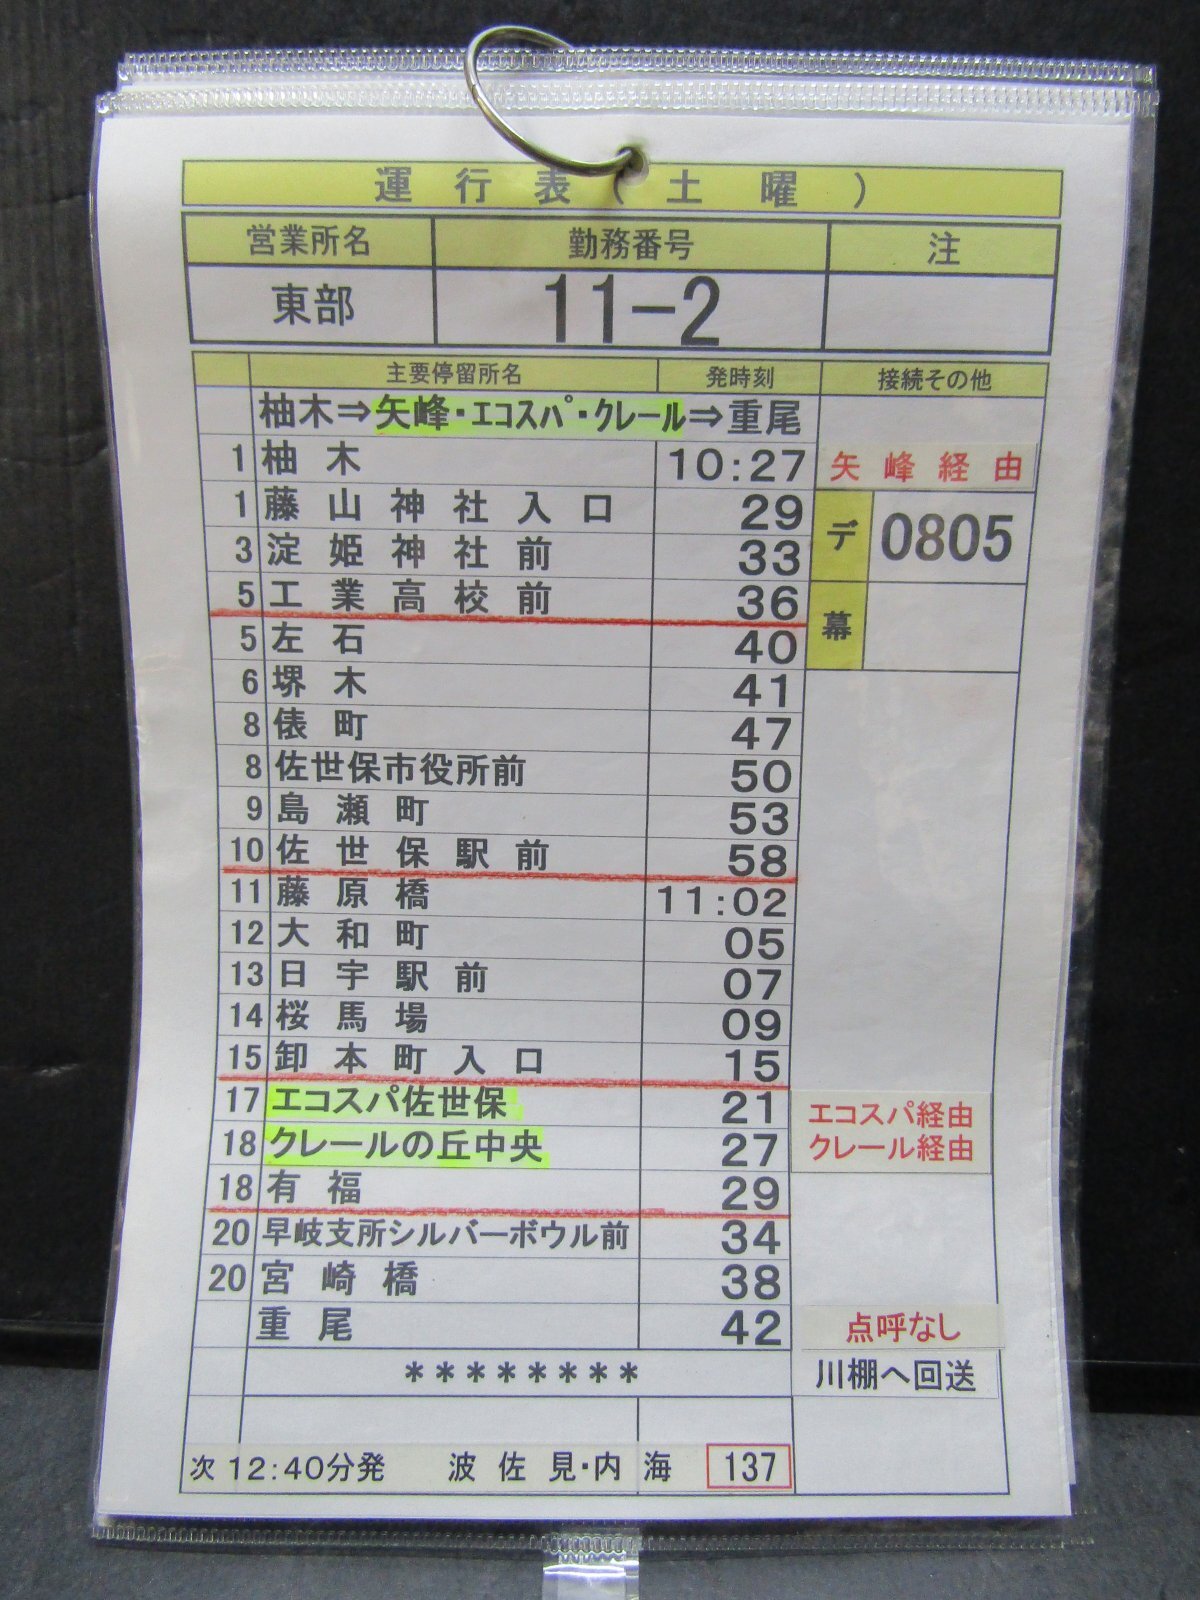 運行表(土曜)
営業所名 勤務番号 注
東部 11-2
主要停留所名 発時刻 接続その他
柚木⇒矢峰・エコスパ・クレール⇒重尾
1 柚木 10:27 矢峰経由
1 藤山神社入口 29 デ 0805
3 淀姫神社前 33
5 工業高校前 36 幕
5 左石 40
6 堺木 41
8 俵町 47
8 佐世保市役所前 50
9 島瀬町 53
10 佐世保駅前 58
11 藤原橋 11:02
12 大和町 05
13 日宇駅前 07
14 桜馬場 09
15 卸本町入口 15
17 エコスパ佐世保 21 エコスパ経由
18 クレールの丘中央 27 クレール経由
18 有福 29
20 早岐支所シルバーボウル前 34
20 宮崎橋 38
重尾 42 点呼なし
******** 川棚へ回送
次 12:40分発 波佐見・内海 137